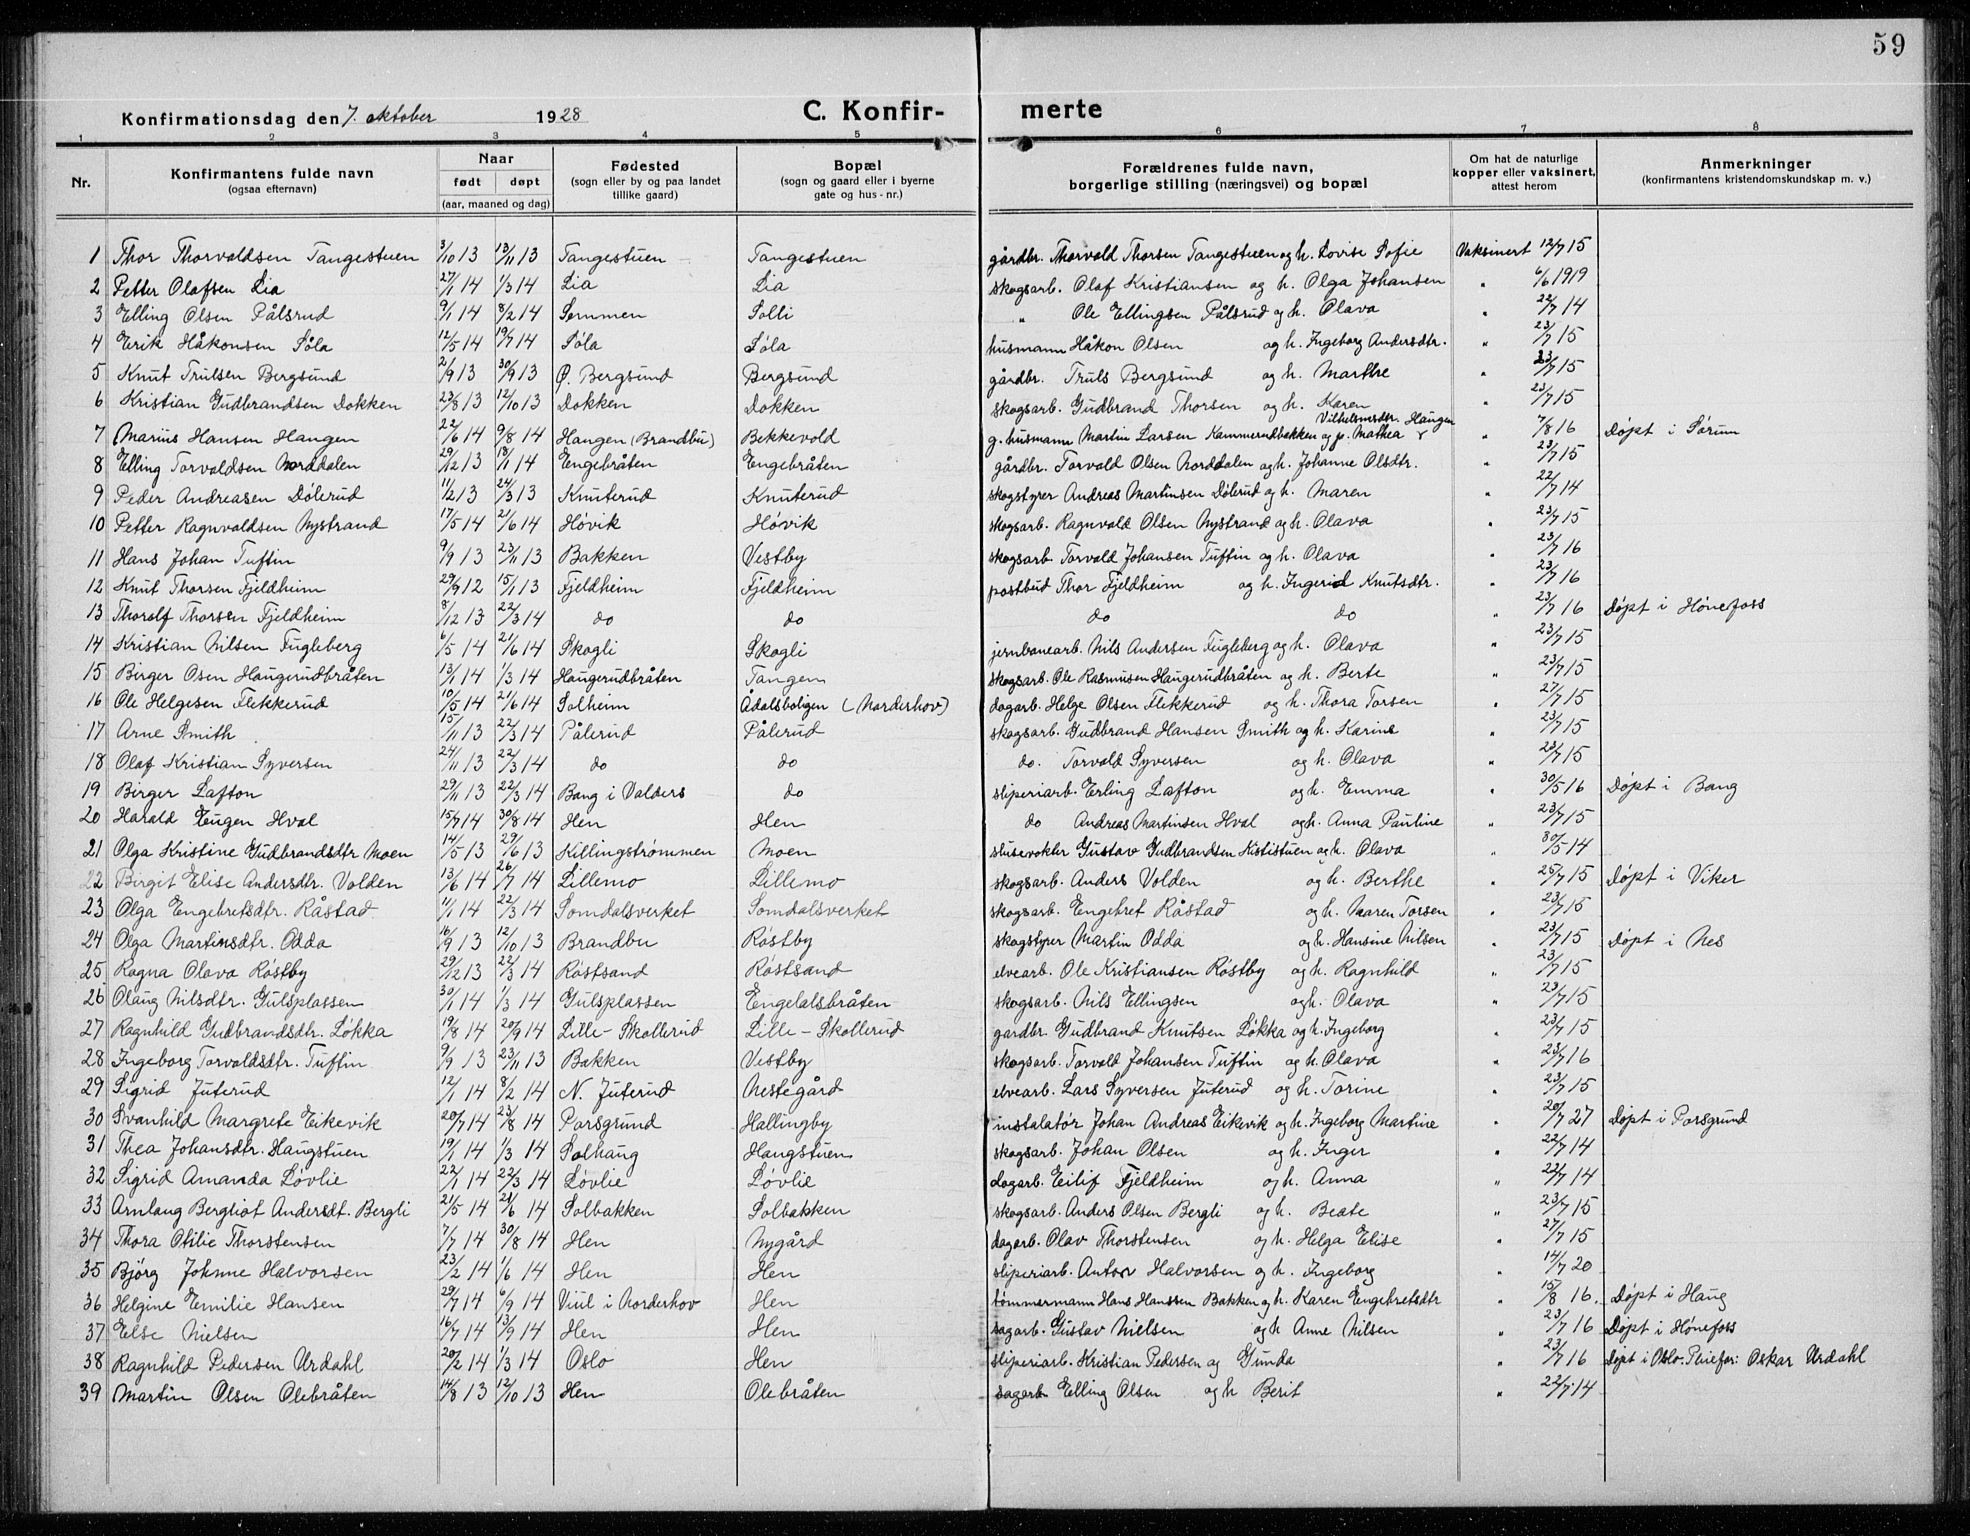 59
Konfirmationsdag den 7. oktober 1928 C. Konfir- merte
1 2 3 4 5 6 7 8
Nr. Konfirmantens fulde navn (ogsaa efternavn) Naar født døpt (aar, maaned og dag) Fødested (sogn eller by og paa landet tillike gaard) Bopæl (sogn og gaard eller i byerne gate og hus-nr.) Forældrenes fulde navn, borgerlige stilling (næringsvei) og bopæl Om hat de naturlige kopper eller vaksinert, attest herom Anmerkninger (konfirmantens kristendomskundskap m. v.)
1 Thor Thorvaldsen Tangestuen 3/10 13 13/11 13 Tangestuen Tangestuen gårdbr. Thorvald Thorsen Tangestuen og h. Lovise Sofie Vaksinert 12/7 15
2 Petter Olafsen Lia 27/1 14 1/3 14 Lia Lia skogsarb. Olaf Kristiansen og h. Olga Johansen " 6/6 1919
3 Elling Olsen Pålsrud 9/1 14 8/2 14 Semmen Solli " Ole Ellingsen Pålsrud og h. Olava " 22/7 14
4 Erik Håkonsen Søla 12/5 14 19/7 14 Søla Søla husmann Håkon Olsen og h. Ingeborg Andersdtr. " 23/7 15
5 Knut Trulsen Bergsund 2/9 13 30/9 13 Ø. Bergsund Bergsund gårdbr. Truls Bergsund og h. Marthe " 23/7 15
6 Kristian Gudbrandsen Dokken 23/8 13 12/10 13 Dokken Dokken skogsarb. Gudbrand Thorsen og h. Karen " 23/7 15
7 Marius Hansen Haugen 22/6 14 9/8 14 Haugen (Brandbu) Bekkevold g. husmann Martin Larsen Kammerudbakken og p. Mathea Vilhelmsdtr. Haugen " 7/8 16 Døpt i Sørum
8 Elling Torvaldsen Norddalen 29/12 13 18/1 14 Engebråten Engebråten gårdbr. Torvald Olsen Norddalen og h. Johanne Olsdtr. " 23/7 15
9 Peder Andreasen Dølerud 11/2 13 24/3 13 Knuterud Knuterud skogstyrer Andreas Martinsen Dølerud og h. Maren " 22/7 14
10 Petter Ragnvaldsen Nystrand 17/5 14 21/6 14 Høvik Høvik skogsarb. Ragnvald Olsen Nystrand og h. Olava " 23/7 15
11 Hans Johan Tuftin 9/9 13 23/11 13 Bakken Vestby skogsarb. Torvald Johansen Tuftin og h. Olava " 23/7 16
12 Knut Thorsen Fjeldheim 29/9 12 15/1 13 Fjeldheim Fjeldheim postbud Thor Fjeldheim og h. Ingerid Knutsdtr. " 23/7 16
13 Thorolf Thorsen Fjeldheim 8/12 13 22/3 14 do do do do " 23/7 16 Døpt i Hønefoss
14 Kristian Nilsen Fugleberg 6/5 14 21/6 14 Skogli Skogli jernbanearb. Nils Andersen Fugleberg og h. Olava " 23/7 15
15 Birger Osen Haugerudbråten 13/1 14 1/3 14 Haugerudbråten Tangen skogsarb. Ole Rasmusen Haugerudbråten og h. Berte " 23/7 15
16 Ole Helgesen Flekkerud 10/5 14 21/6 14 Solheim Ådalsboligen (Norderhov) dagarb. Helge Olsen Flekkerud og h. Thora Torsen " 27/7 15
17 Arne Smith 15/11 13 22/3 14 Pålerud Pålerud skogsarb. Gudbrand Hansen Smith og h. Karine " 23/7 15
18 Olaf Kristian Syversen 24/11 13 22/3 14 do do do. Torvald Syversen og h. Olava " 23/7 15
19 Birger Lafton 29/11 13 22/3 14 Bang i Valders do sliperiarb. Erling Lafton og h. Emma " 30/5 16 Døpt i Bang
20 Harald Eugen Hval 15/7 14 30/8 14 Hen Hen do Andreas Martinsen Hval og h. Anna Pauline " 23/7 15
21 Olga Kristine Gudbrandsdtr Moen 14/5 13 29/6 13 Killingstrømmen Moen slusevokter Gustav Gudbrandsen Kististuen og h. Olava " 30/5 14
22 Birgit Elise Andersdtr. Volden 13/6 14 26/7 14 Lillemo Lillemo skogsarb. Anders Volden og h. Berthe " 25/7 15 Døpt i Viker
23 Olga Engebretsdtr. Råstad 11/1 14 22/3 14 Somdalsverket Somdalsverket skogsarb. Engebret Råstad og h. Maren Torsen " 23/7 15
24 Olga Martinsdtr. Odda 16/9 13 12/10 13 Brandbu Røstby skogstyrer Martin Odda og h. Hansine Nilsen " 23/7 15 Døpt i Nes
25 Ragna Olava Røstby 29/12 13 22/3 14 Røstsand Røstsand elvearb. Ole Kristiansen Røstby og h. Ragnhild " 23/7 15
26 Olaug Nilsdtr. Gulsplassen 30/1 14 1/3 14 Gulsplassen Engelalsbråten skogsarb. Nils Ellingsen og h. Olava " 23/7 15
27 Ragnhild Gudbrandsdtr. Løkka 19/8 14 20/9 14 Lille-Skollerud Lille-Skollerud gardbr. Gudbrand Knutsen Løkka og h. Ingeborg " 23/7 15
28 Ingeborg Torvaldsdtr. Tuftin 9/9 13 23/11 13 Bakken Vestby skogsarb. Torvald Johansen Tuftin og h. Olava " 23/7 16
29 Sigrid Juterud 12/1 14 8/2 14 N. Juterud Nestegård elvearb. Lars Syversen Juterud og h. Torine " 23/7 15
30 Svanhild Margrete Eikevik 20/7 14 23/8 14 Porsgrund Hallingby instalatør Johan Andreas Eikevik og h. Ingeborg Martine " 20/7 27 Døpt i Porsgrund
31 Thea Johansdtr. Haugstuen 19/1 14 1/3 14 Solhaug Haugstuen skogsarb. Johan Olsen og h. Inger " 22/7 14
32 Sigrid Amanda Løvlie 22/1 14 22/3 14 Løvlie Løvlie dagarb. Eilif Fjeldheim og h. Anna " 22/7 14
33 Arnlaug Bergliot Andersdt. Bergli 21/5 14 21/6 14 Solbakken Solbakken skogsarb. Anders Olsen Bergli og h. Beate " 23/7 15
34 Thora Otilie Thorstensen 7/7 14 30/8 14 Hen Nygård dagarb. Olav Thorstensen og h. Helga Elise " 27/7 15
35 Bjørg Johnne Halvorsen 23/2 14 1/6 14 Hen Hen sliperiarb. Anton Halvorsen og h. Ingeborg " 14/7 20
36 Helgine Emilie Hansen 29/7 14 6/9 14 Viul i Norderhov Hen tømmermann Hans Hanssen Bakken og h. Karen Engebretsdtr " 15/8 16. Døpt i Haug
37 Else Nielsen 16/7 14 13/9 14 Hen Hen sagarb. Gustav Nielsen og h Anne Nilsen " 23/7 16 Døpt i Hønefoss
38 Ragnhild Pedersen Urdahl 20/2 14 1/3 14 Oslo Hen sliperiarb. Kristian Pedersen og Gunda " 23/7 16 Døpt i Oslo. Pleiefar: Oskar Urdahl
39 Martin Olsen Olebråten 14/8 13 12/10 13 Hen Olebråten sagarb Elling Olsen og h Berit " 22/7 14